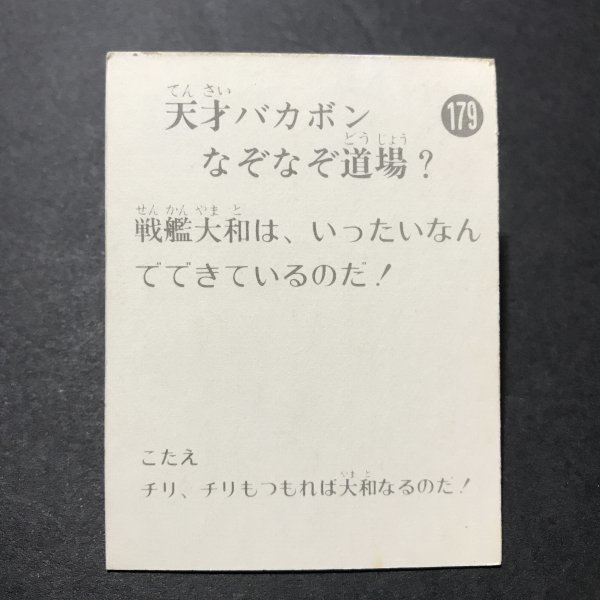 てんさい
天才バカボン
179
どうじょう
なぞなぞ道場？
せんかんやまと
戦艦大和は、いったいなん
でできているのだ！
こたえ
やまと
チリ、チリもつもれば大和なるのだ！